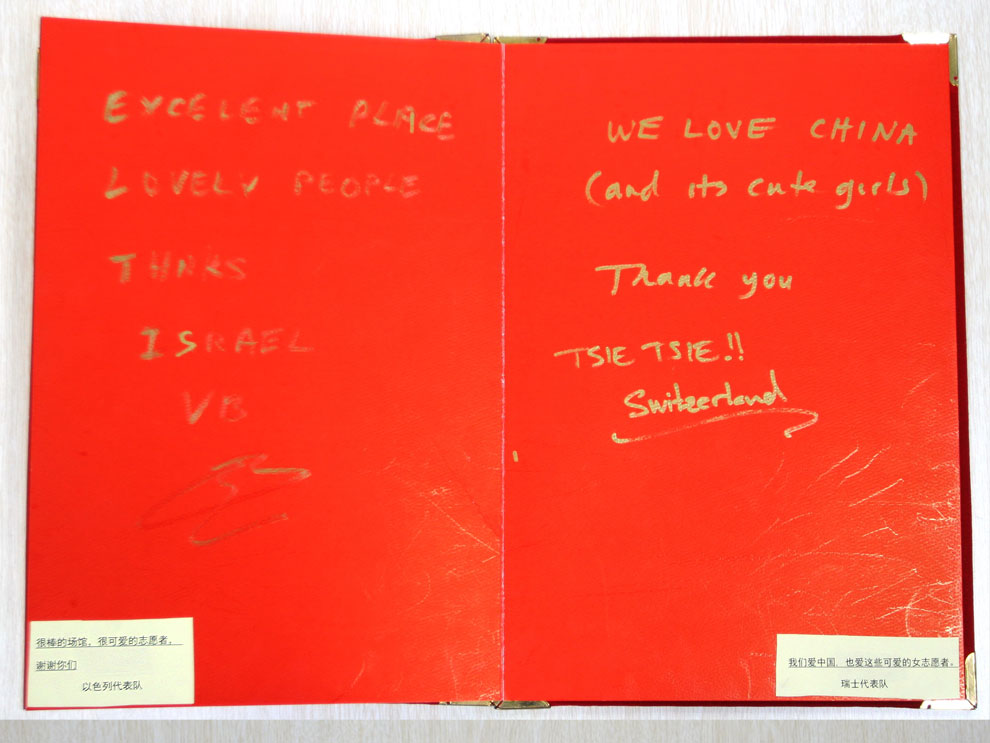 EXCELENT PLACE
LOVELY PEOPLE
THNKS
ISRAEL
VB
很棒的场馆，很可爱的志愿者，
谢谢你们
以色列代表队
WE LOVE CHINA
(and its cute girls)
Thank you
TSIE TSIE!!
Switzerland
我们爱中国，也爱这些可爱的女志愿者。
瑞士代表队